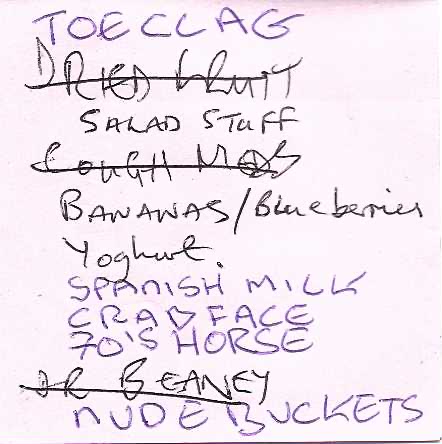 TOECLAG
DRIED FRUIT
SALAD STUFF
COUGH MEDS
BANANAS/Blueberries
Yoghurt.
SPANISH MILK
CRAB FACE
70'S HORSE
DR BEANEY
NUDE BUCKETS